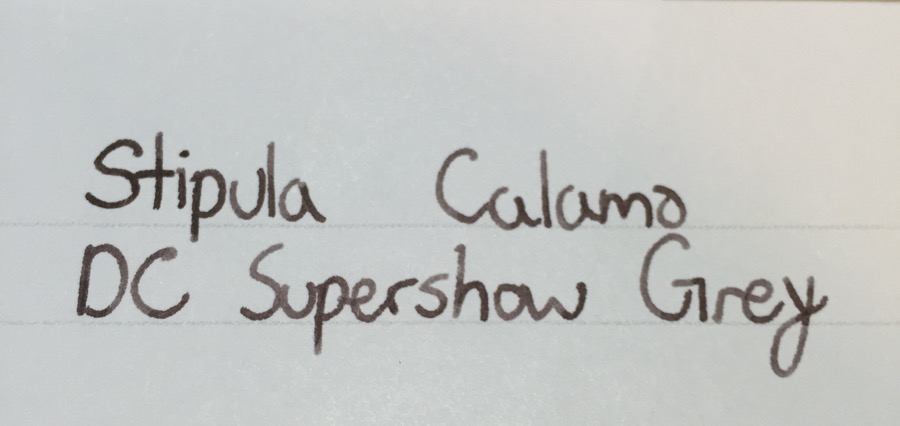 Stipula Calamo
DC Supershow Grey